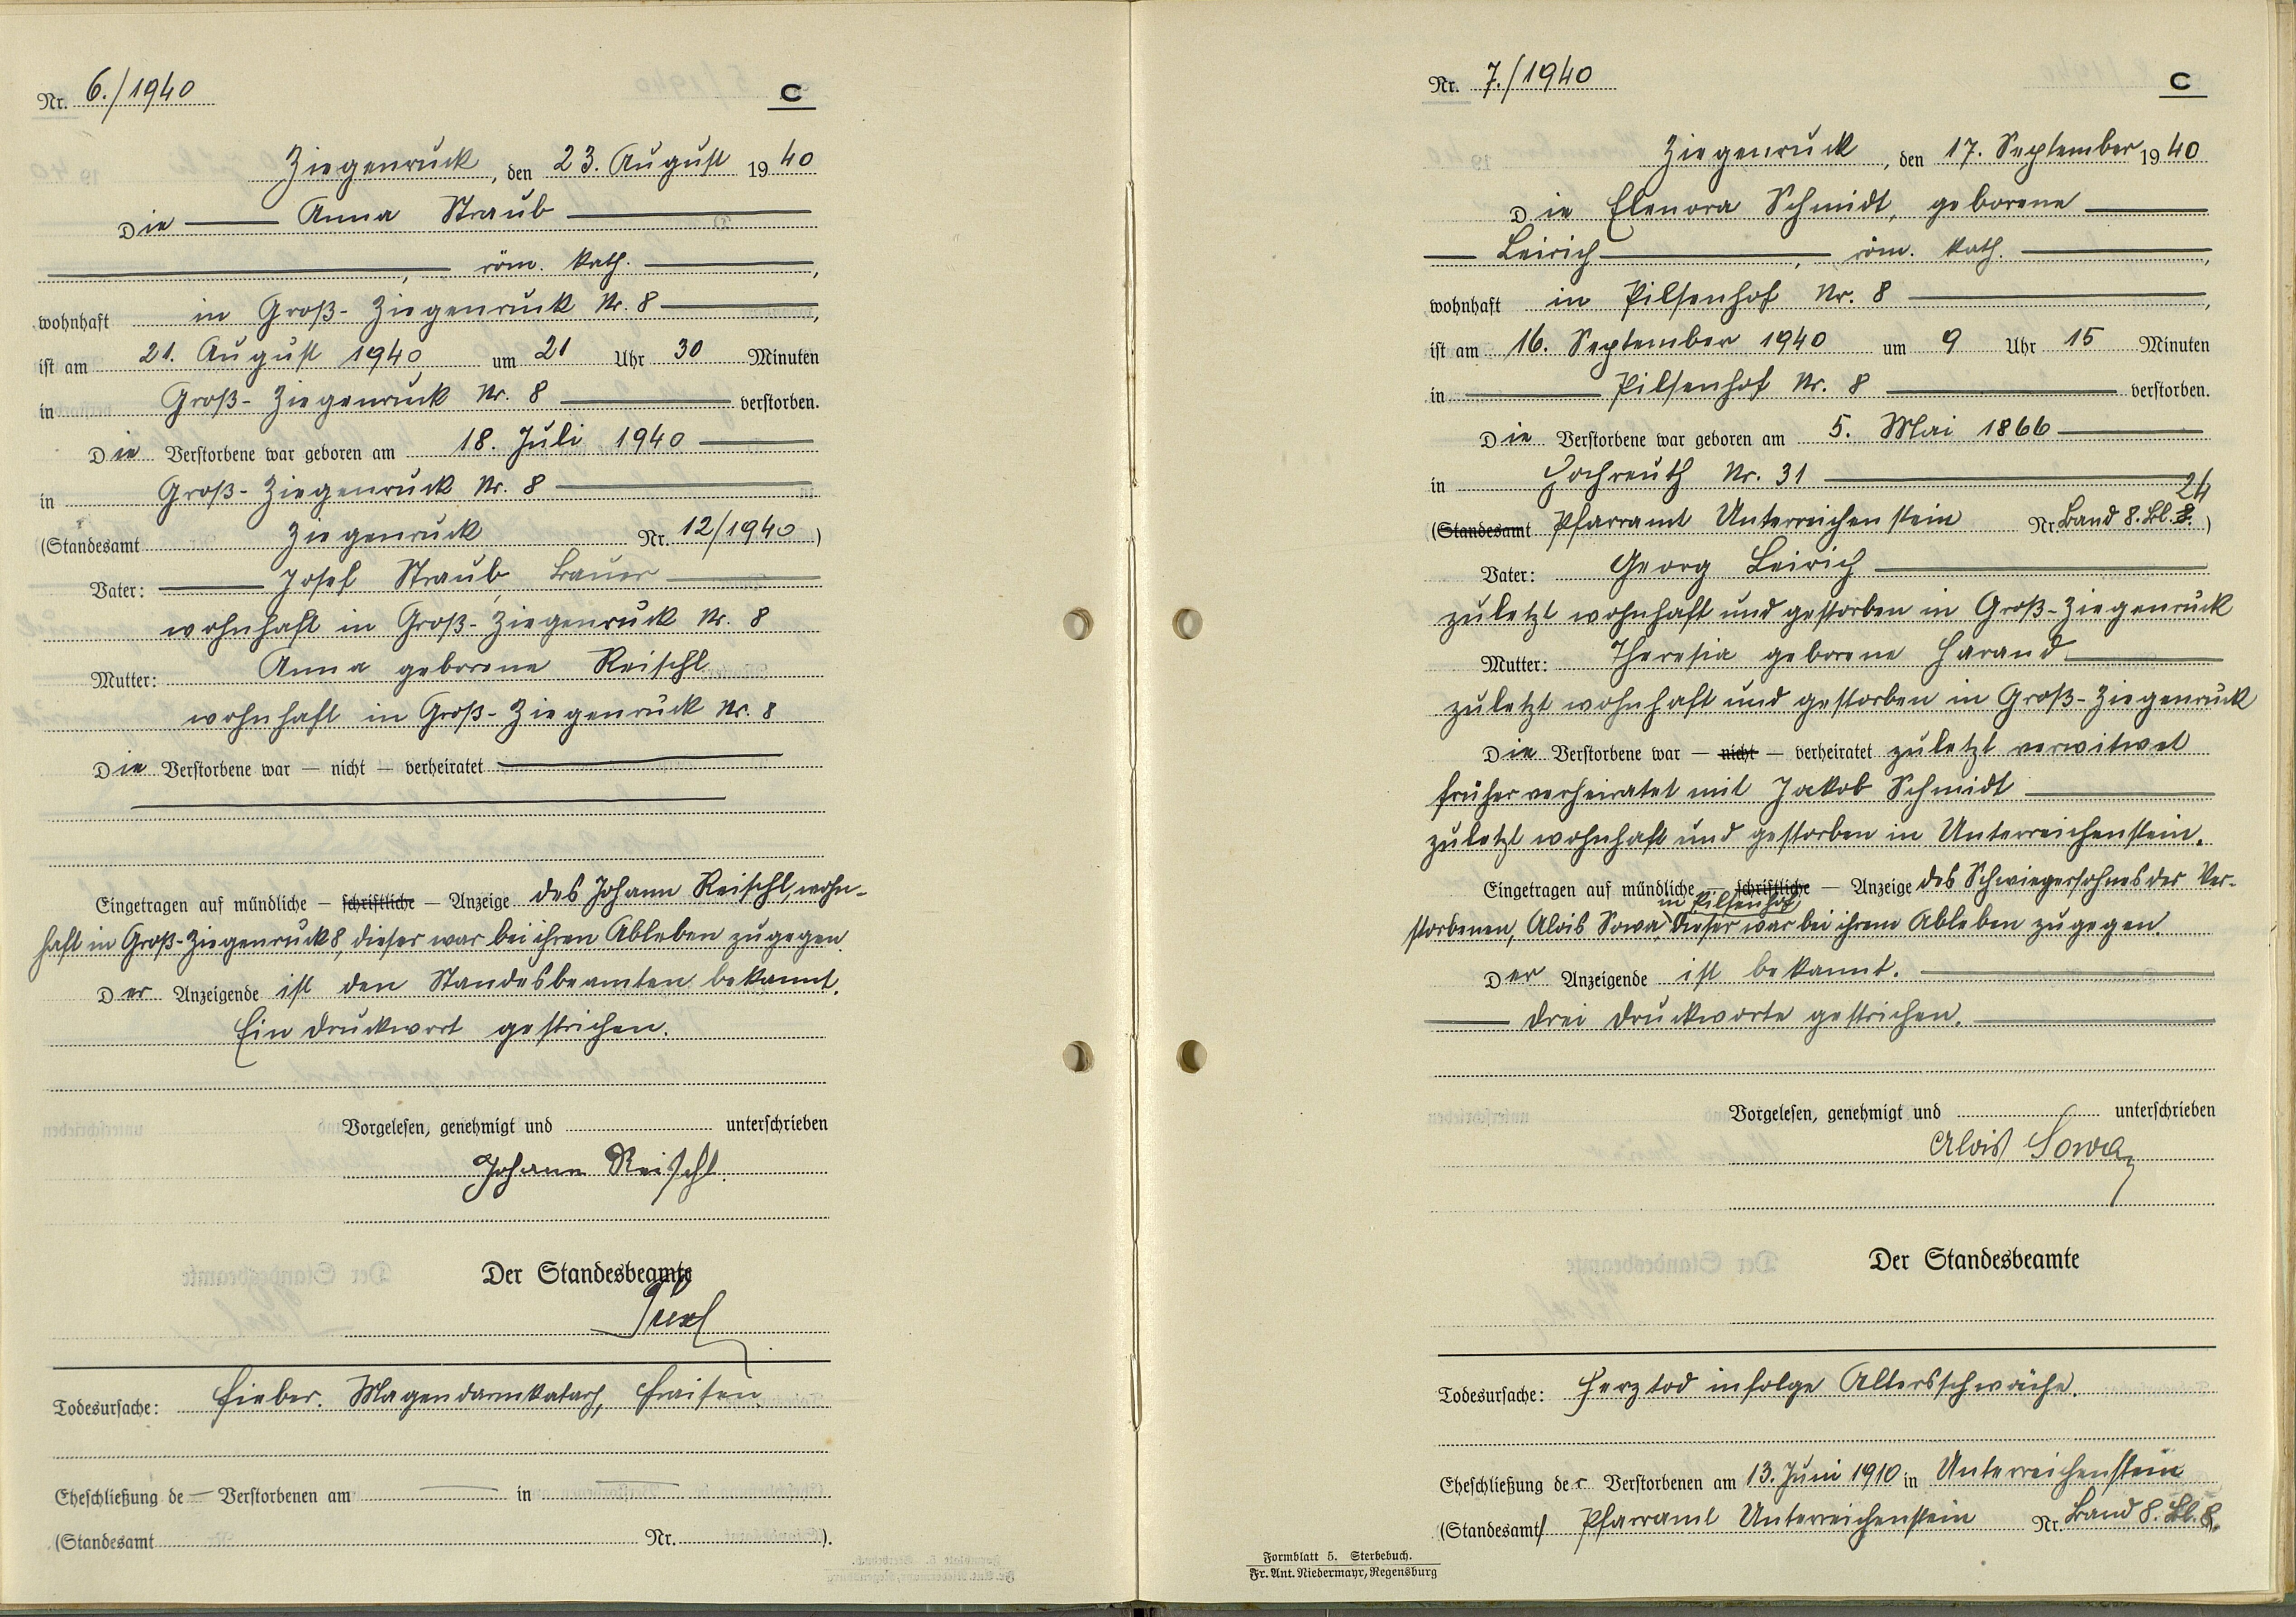 Nr. 6./1940 C
Ziegenruck, den 23. August 1940
Die Anna Straub
, röm. kath. ,
wohnhaft in Groß-Ziegenruck Nr. 8 ,
ist am 21. August 1940 um 21 Uhr 30 Minuten
in Groß-Ziegenruck Nr. 8 verstorben.
Die Verstorbene war geboren am 18. Juli 1940
in Groß-Ziegenruck Nr. 8
(Standesamt Ziegenruck Nr. 12/1940)
Vater: Josef Straub, Bauer
wohnhaft in Groß-Ziegenruck Nr. 8
Mutter: Anna geborene Reischl
wohnhaft in Groß-Ziegenruck Nr. 8
Die Verstorbene war — nicht — verheiratet
Eingetragen auf mündliche — schriftliche — Anzeige des Johann Reischl, wohn-
haft in Groß-Ziegenruck 8, dieser war bei ihren Ableben zugegen.
Der Anzeigende ist den Standesbeamten bekannt.
Ein Druckwort gestrichen.
Vorgelesen, genehmigt und unterschrieben
Johann Reischl.
Der Standesbeamte
Todesursache: Fieber. Magendarmkatarh, Fraisen
Eheschließung de — Verstorbenen am — in —
(Standesamt Nr. ).
Nr. 7./1940 C
Ziegenruck, den 17. September 1940
Die Elenora Schmidt, geborene
Leirich , röm. kath. ,
wohnhaft in Pilsenhof Nr. 8 ,
ist am 16. September 1940 um 9 Uhr 15 Minuten
in Pilsenhof Nr. 8 verstorben.
Die Verstorbene war geboren am 5. Mai 1866
in Hochreuth Nr. 31
24
(Standesamt Pfarramt Unterreichenstein Nr. Band 8. Bl. 8.)
Vater: Georg Leirich
zuletzt wohnhaft und gestorben in Groß-Ziegenruck
Mutter: Theresia geborene Harand
zuletzt wohnhaft und gestorben in Groß-Ziegenruck
Die Verstorbene war — nicht — verheiratet zuletzt verwitwet
früher verheiratet mit Jakob Schmidt
zuletzt wohnhaft und gestorben in Unterreichenstein.
Eingetragen auf mündliche — schriftliche — Anzeige des Schwiegersohnes der Ver-
in Pilsenhof
storbenen, Alois Sowa, Dieser war bei ihrem Ableben zugegen.
Der Anzeigende ist bekannt.
Drei Druckworte gestrichen.
Vorgelesen, genehmigt und unterschrieben
Alois Sowa
Der Standesbeamte
Todesursache: Herztod infolge Altersschwäche.
Eheschließung der Verstorbenen am 13. Juni 1910 in Unterreichenstein
(Standesamt) Pfarramt Unterreichenstein Nr. Band 8. Bl. 8.
Formblatt 5. Sterbebuch.
Fr. Ant. Niedermayr, Regensburg